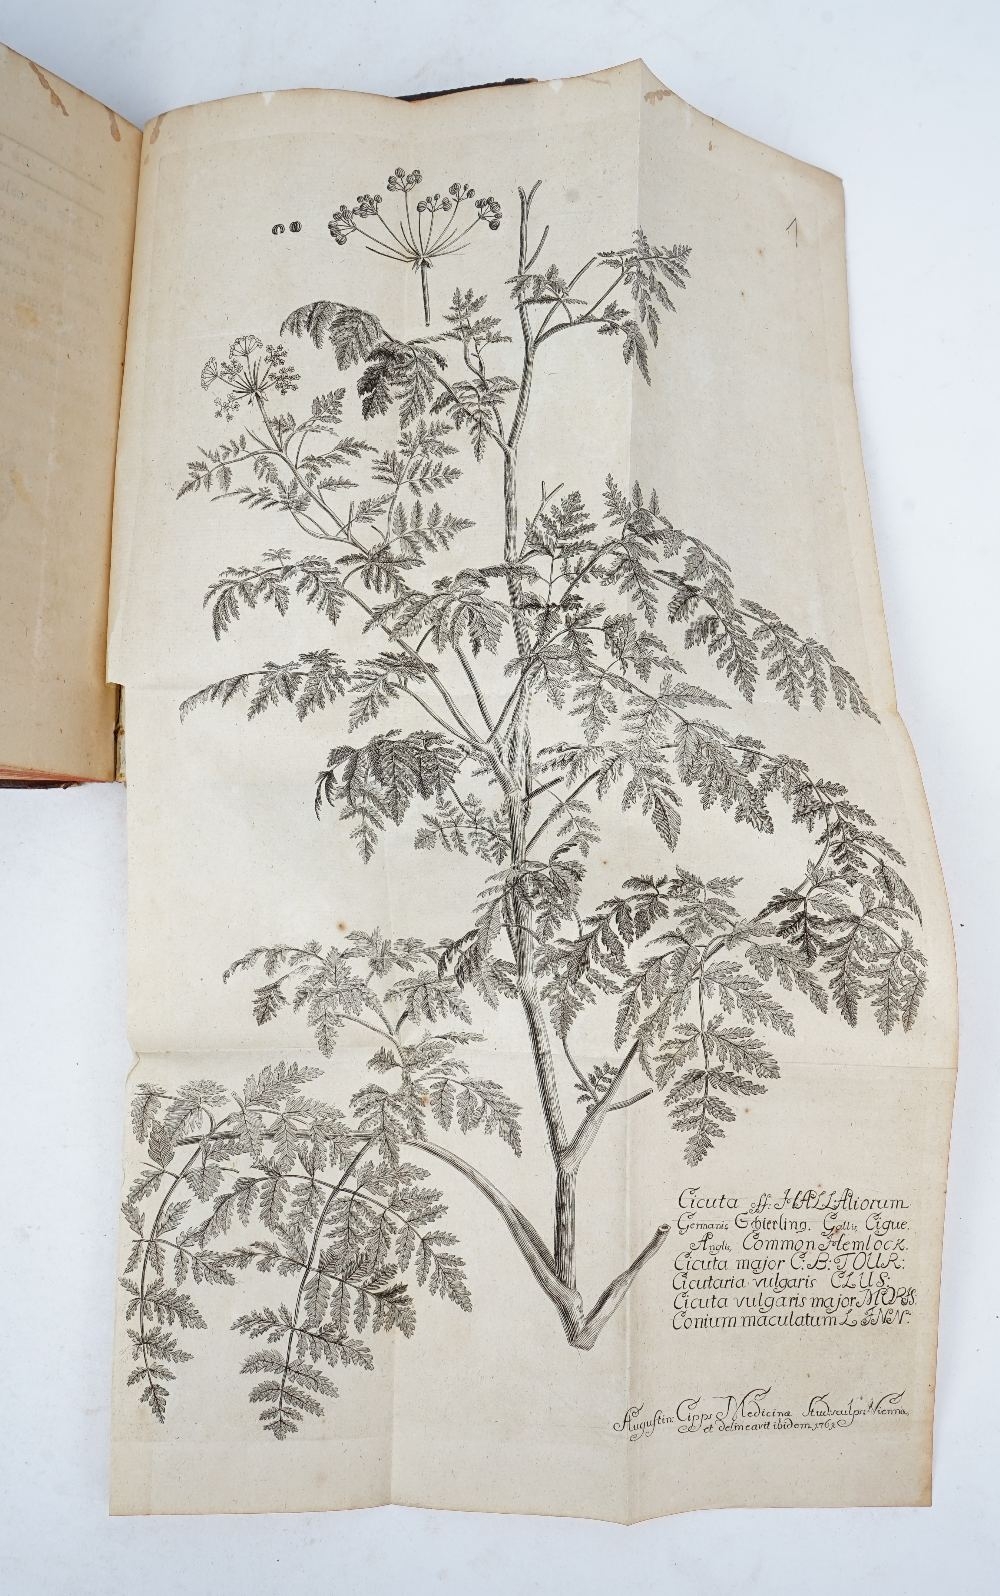 1
Cicuta off. HALLAtiorum
Germanis Schierling. Gallis Cigue.
Anglis, Common Hemlock.
Cicuta major C. B: TOUR:
Cicutaria vulgaris CLUS:
Cicuta vulgaris major MORIS.
Conium maculatum LINN:
Augustin: Cipps Medicinæ Stud: sculpsit Viennæ,
et delineavit ibidem 1761